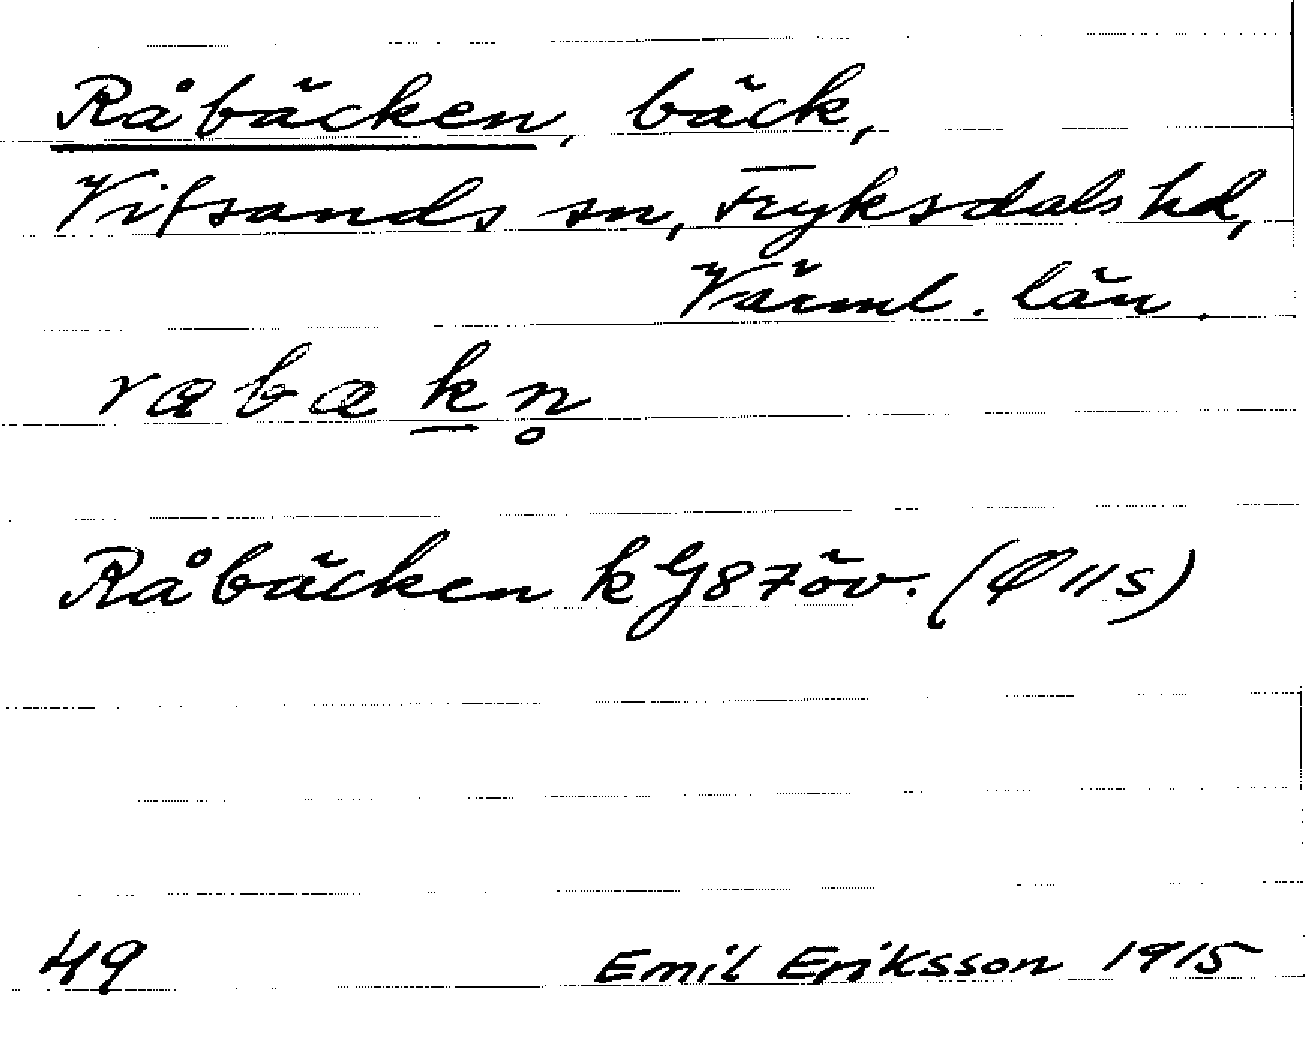 Råbäcken, bäck,
Vitsands sn, Fryksdals hd,
Värml. län.
rabakn̥
Råbäcken kG87öv. (Ø 11 s)
49 Emil Eriksson 1915